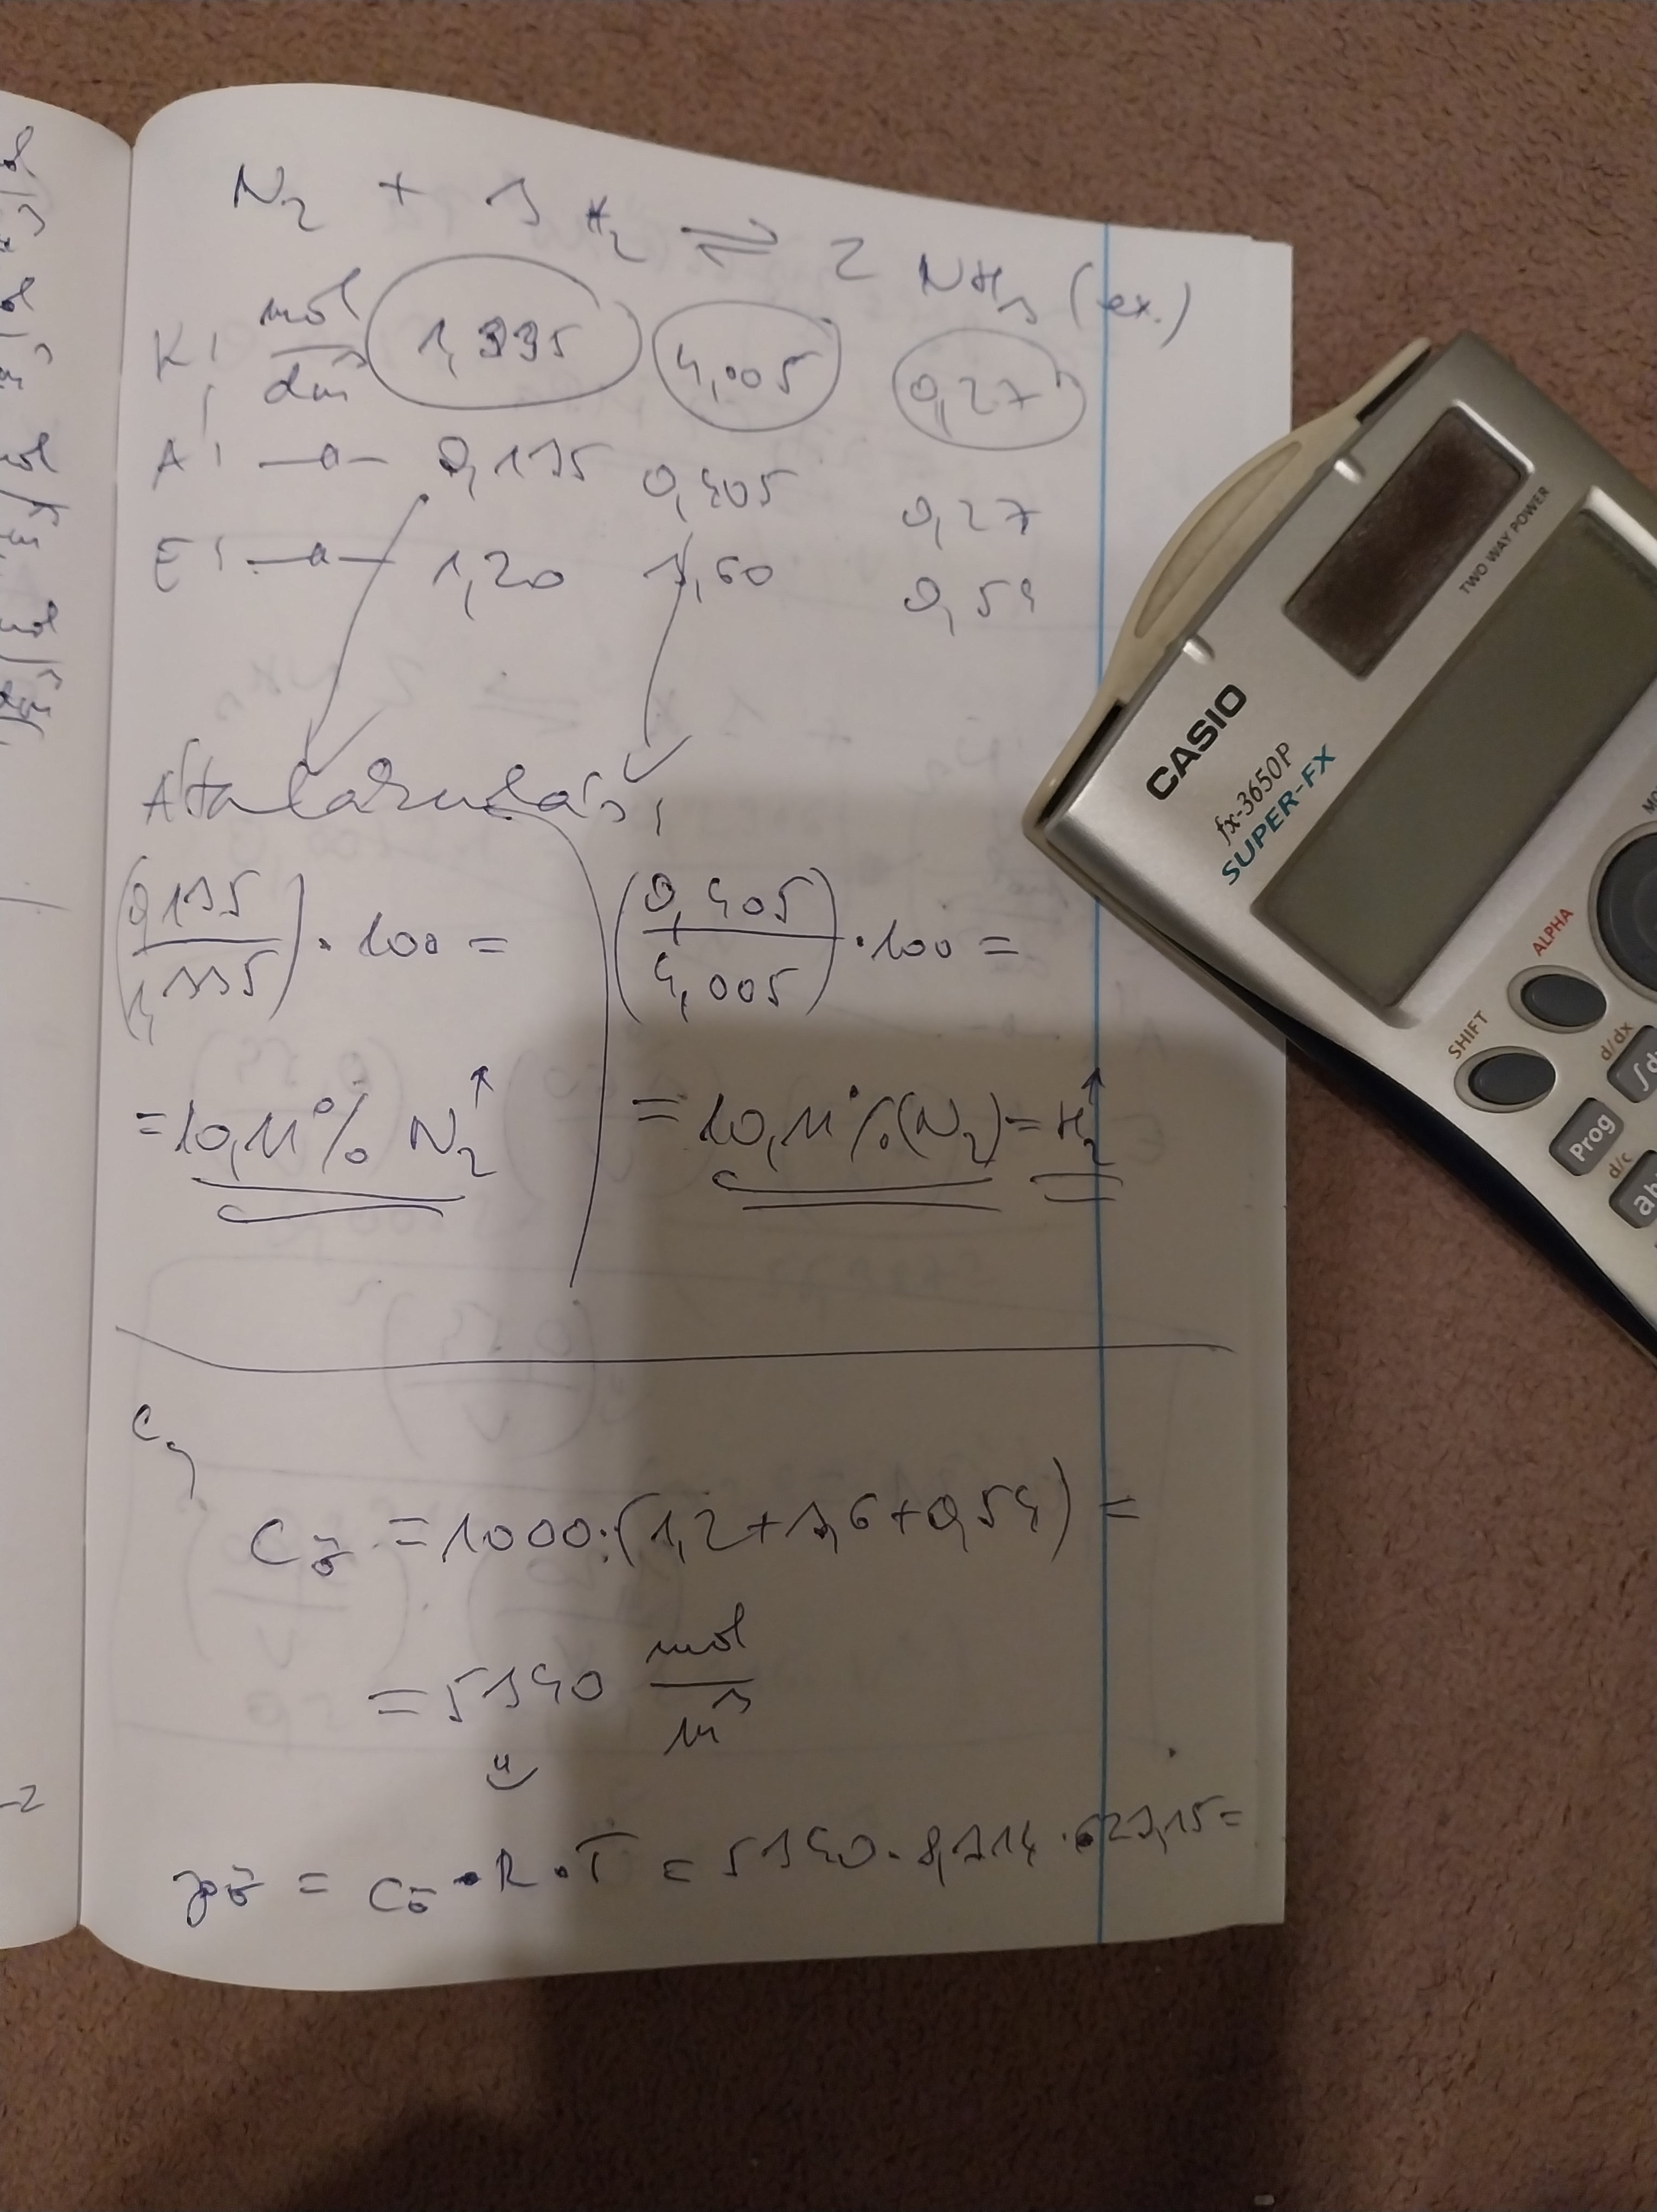 N₂ + 3 H₂ ⇌ 2 NH₃ (ex.)
K: mol/dm³ 1,335 4,005 0,27
A: —"— 0,135 0,405 0,27
E: —"— 1,20 3,60 0,54
Átalakulás:
(0,135/1,335) · 100 = (0,405/4,005) · 100 =
= 10,11% N₂↑ = 10,11% (N₂) = H₂↑
c,
cö = 1000·(1,2+3,6+0,54) =
= 5340 mol/m³
pö = cö · R · T = 5340 · 8,314 · 623,15 =
-2
CASIO
fx-3650P
SUPER-FX
TWO WAY POWER
ALPHA
SHIFT
d/dx
∫dx
Prog
d/c